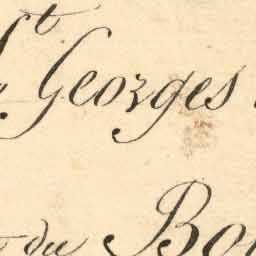 St Georges
du Bo